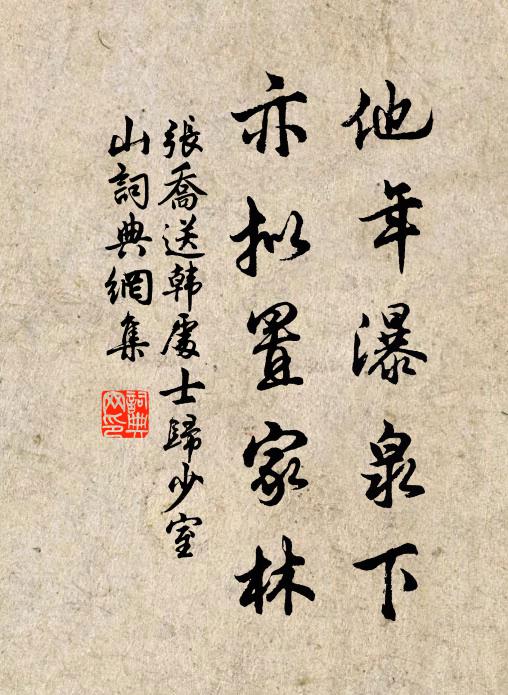 他年瀑泉下
亦拟置家林
張喬送韩處士歸少室
山詞典網集
詞典
网印